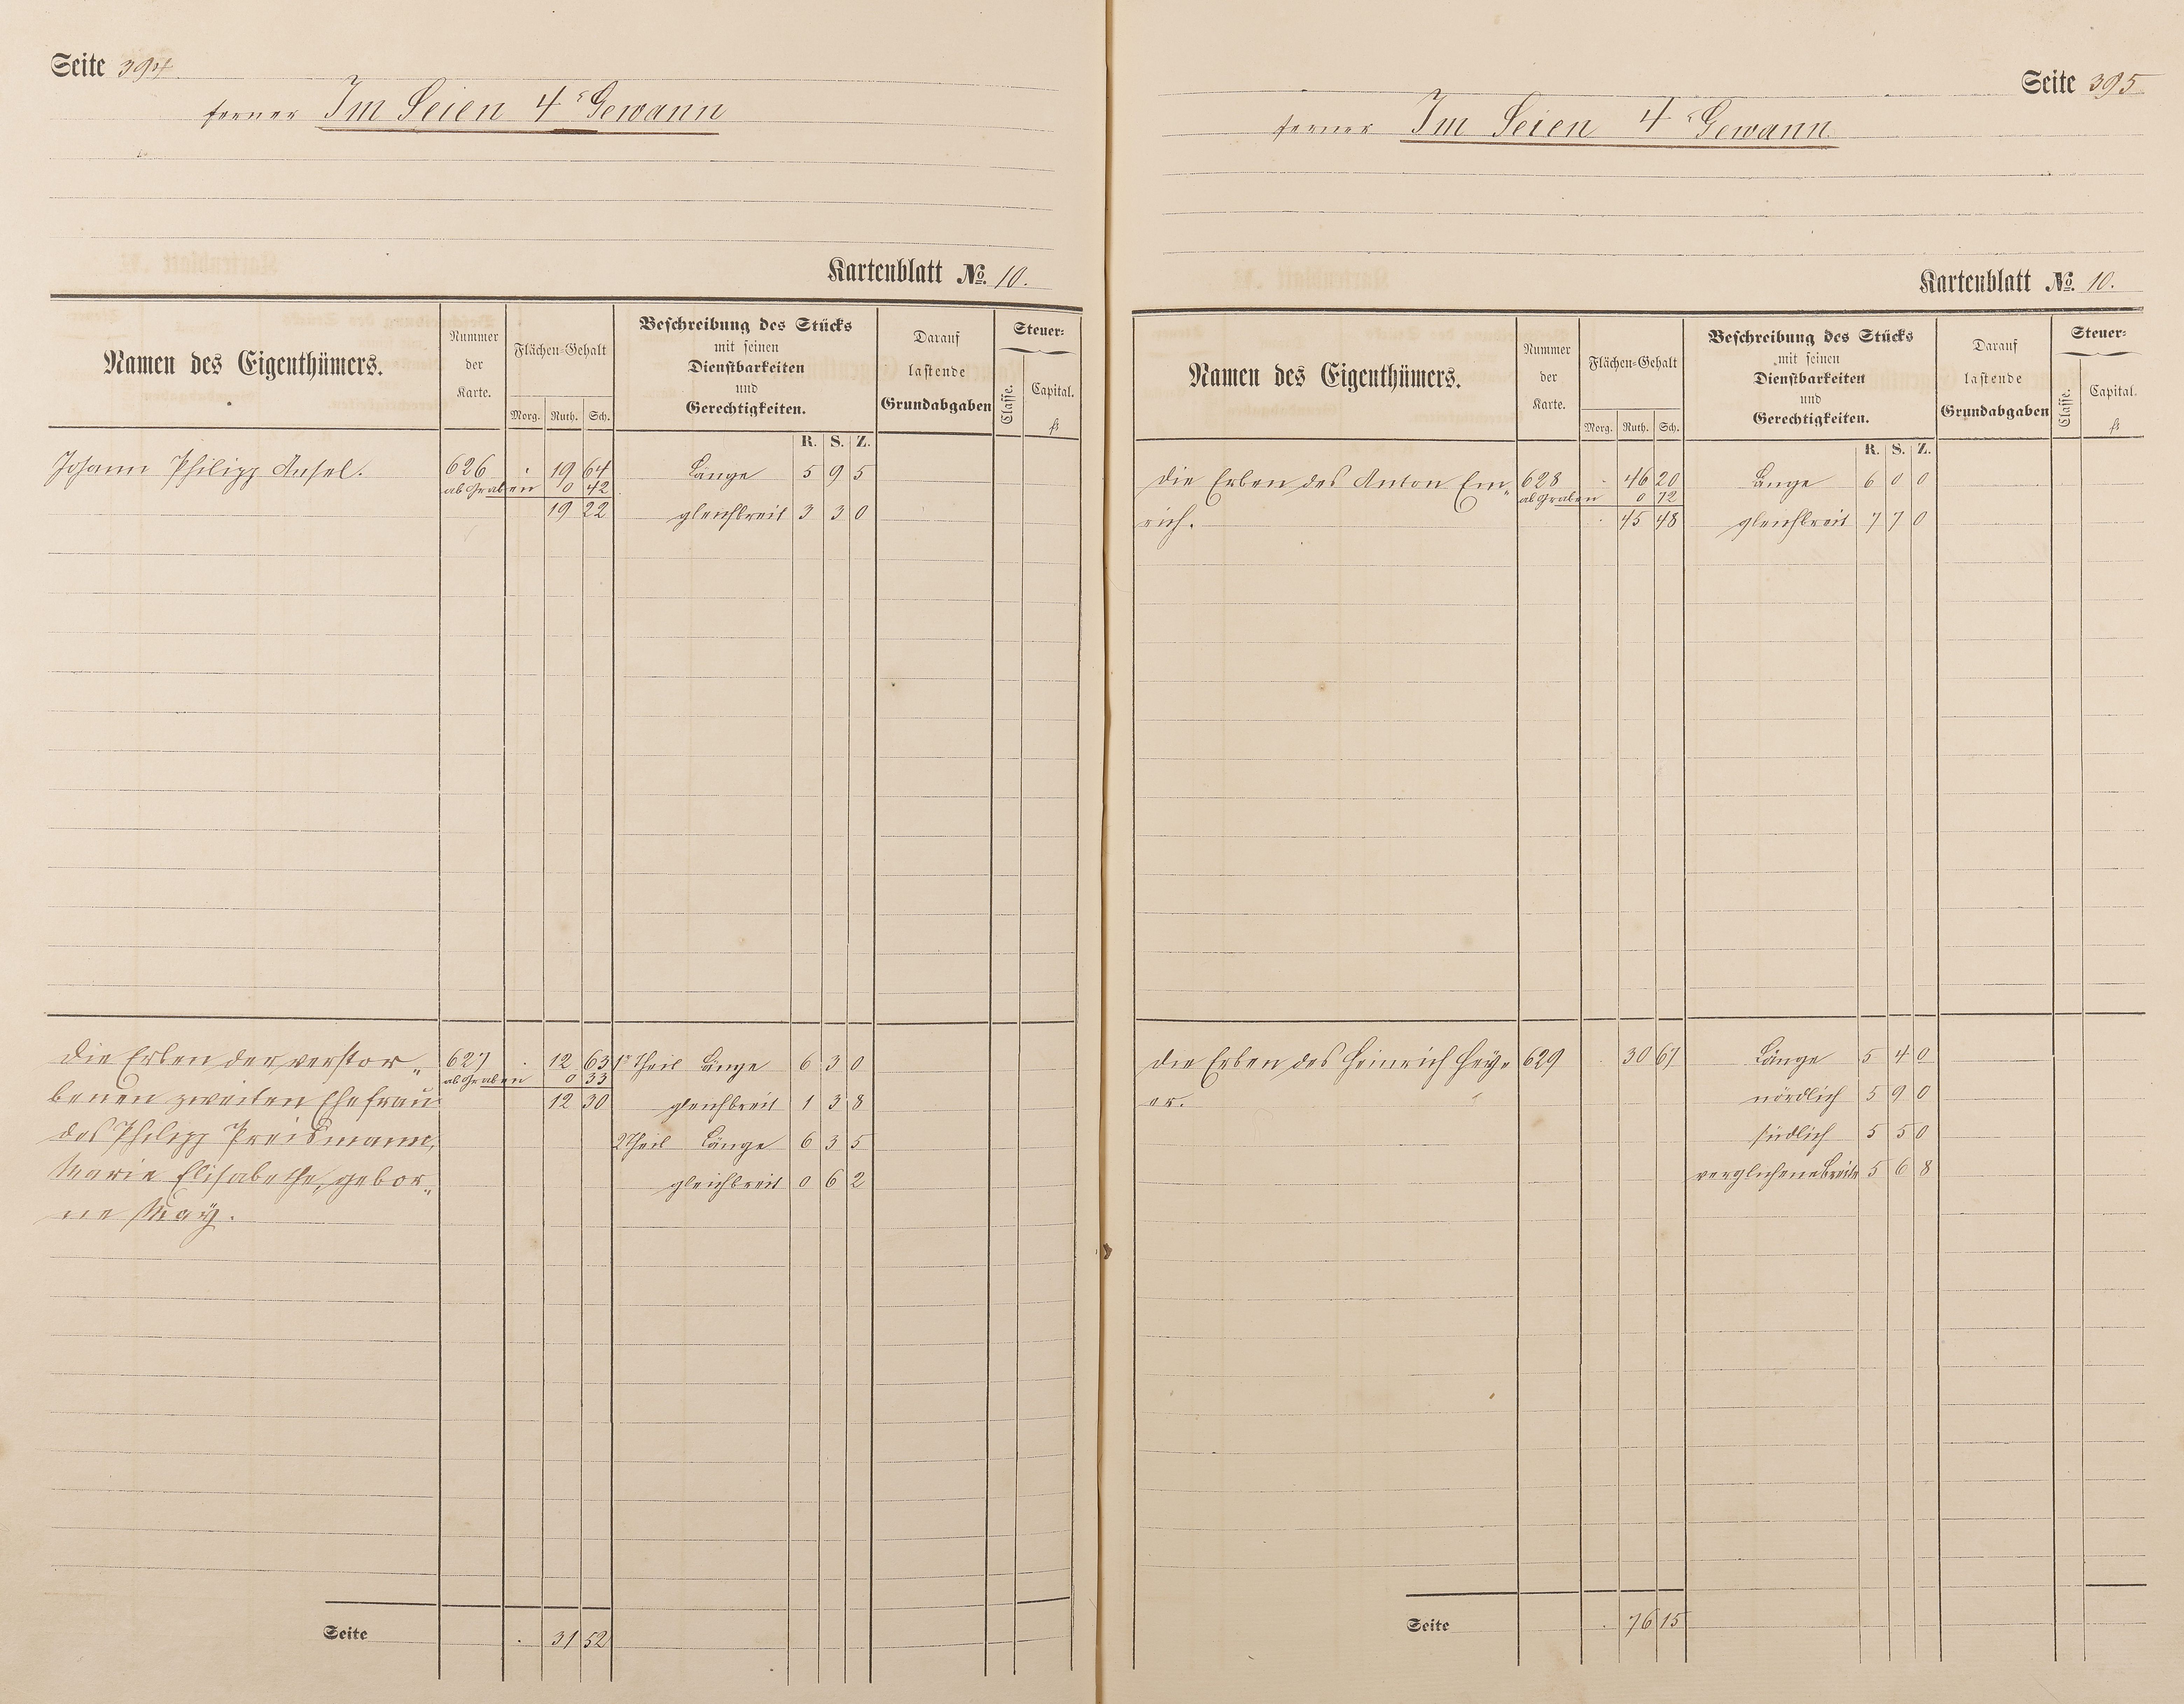 Seite 394
ferner Im Seien 4r Gewann
Kartenblatt No. 10.
Namen des Eigenthümers.
Nummer der Karte.
Flächen-Gehalt
Morg. Ruth. Sch.
Beschreibung des Stücks
mit seinen
Dienstbarkeiten
und
Gerechtigkeiten.
Darauf
lastende
Grundabgaben
Steuer-
Classe.
Capital.
fl
R. S. Z.
Johann Philipp Ansel. 626 . 19 64 Länge 5 9 5
ab Graben 0 42
19 22 gleichbreit 3 3 0
Die Erben der verstor„ 627 . 12 63 1r Theil Länge 6 3 0
ab Graben 0 33
benen zweiten Ehefrau 12 30 gleichbreit 1 3 8
des Philipp Preismann, 2 Theil Länge 6 3 5
Marie Elisabethe, gebor„ gleichbreit 0 6 2
ne May.
Seite . 31 52
Seite 395
ferner Im Seien 4r Gewann
Kartenblatt No. 10.
Namen des Eigenthümers.
Nummer der Karte.
Flächen-Gehalt
Morg. Ruth. Sch.
Beschreibung des Stücks
mit seinen
Dienstbarkeiten
und
Gerechtigkeiten.
Darauf
lastende
Grundabgaben
Steuer-
Classe.
Capital.
fl
R. S. Z.
Die Erben des Anton Em„ 628 . 46 20 Länge 6 0 0
ab Graben 0 72
rich. . 45 48 gleichbreit 7 7 0
Die Erben des Heinrich Hey„ 629 . 30 67 Länge 5 4 0
er. nördlich 5 9 0
südlich 5 5 0
verglichene Breite 5 6 8
Seite . 76 15